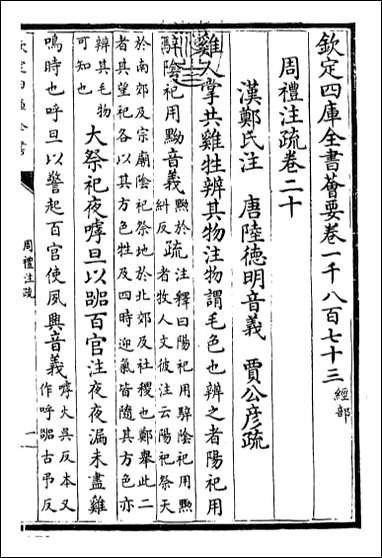 欽定四庫全書薈要卷一千八百七十三 經部
周禮注疏卷二十
漢鄭氏注 唐陸德明音義 賈公彦疏
雞人掌共雞牲辨其物注物謂毛色也辨之者陽祀用
騂陰祀用黝音義黝於糾反疏注釋曰陽祀用騂陰祀用黝者牧人文彼注云陽祀祭天
於南郊及宗廟陰祀祭地於北郊及社稷也鄭舉此二
者其望祀各以其方色牲及四時迎氣皆隨其方色亦
辨其毛物可知也大祭祀夜嘑旦以嘂百官注夜夜漏未盡雞
鳴時也呼旦以警起百官使夙興音義嘑火吳反本又作呼嘂古弔反
欽定四庫全書
周禮注疏
一